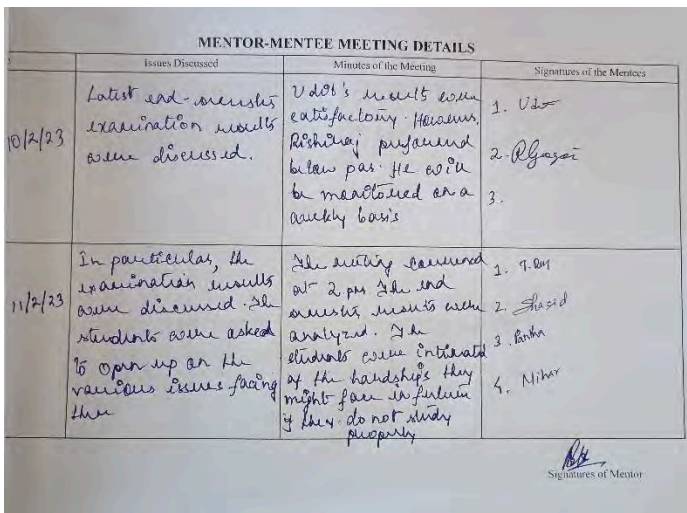 MENTOR-MENTEE MEETING DETAILS
Issues Discussed
Minutes of the Meeting
Signatures of the Mentees
10/2/23
Latest end-semester
examination results
were discussed.
Udit's results were
satisfactory. However,
Rishiraj performed
below par. He will
be monitored on a
weekly basis
1. 
2. RGogoi
3.
11/2/23
In particular, the
examination results
were discussed. The
students were asked
to open up on the
various issues facing
them
The meeting convened
at 2 pm The end
semester results were
analyzed. The
students were intimated
of the hardships they
might face in future
if they do not study
properly
1. 
2. Shasid
3. Partha
4. Mihir
Signatures of Mentor